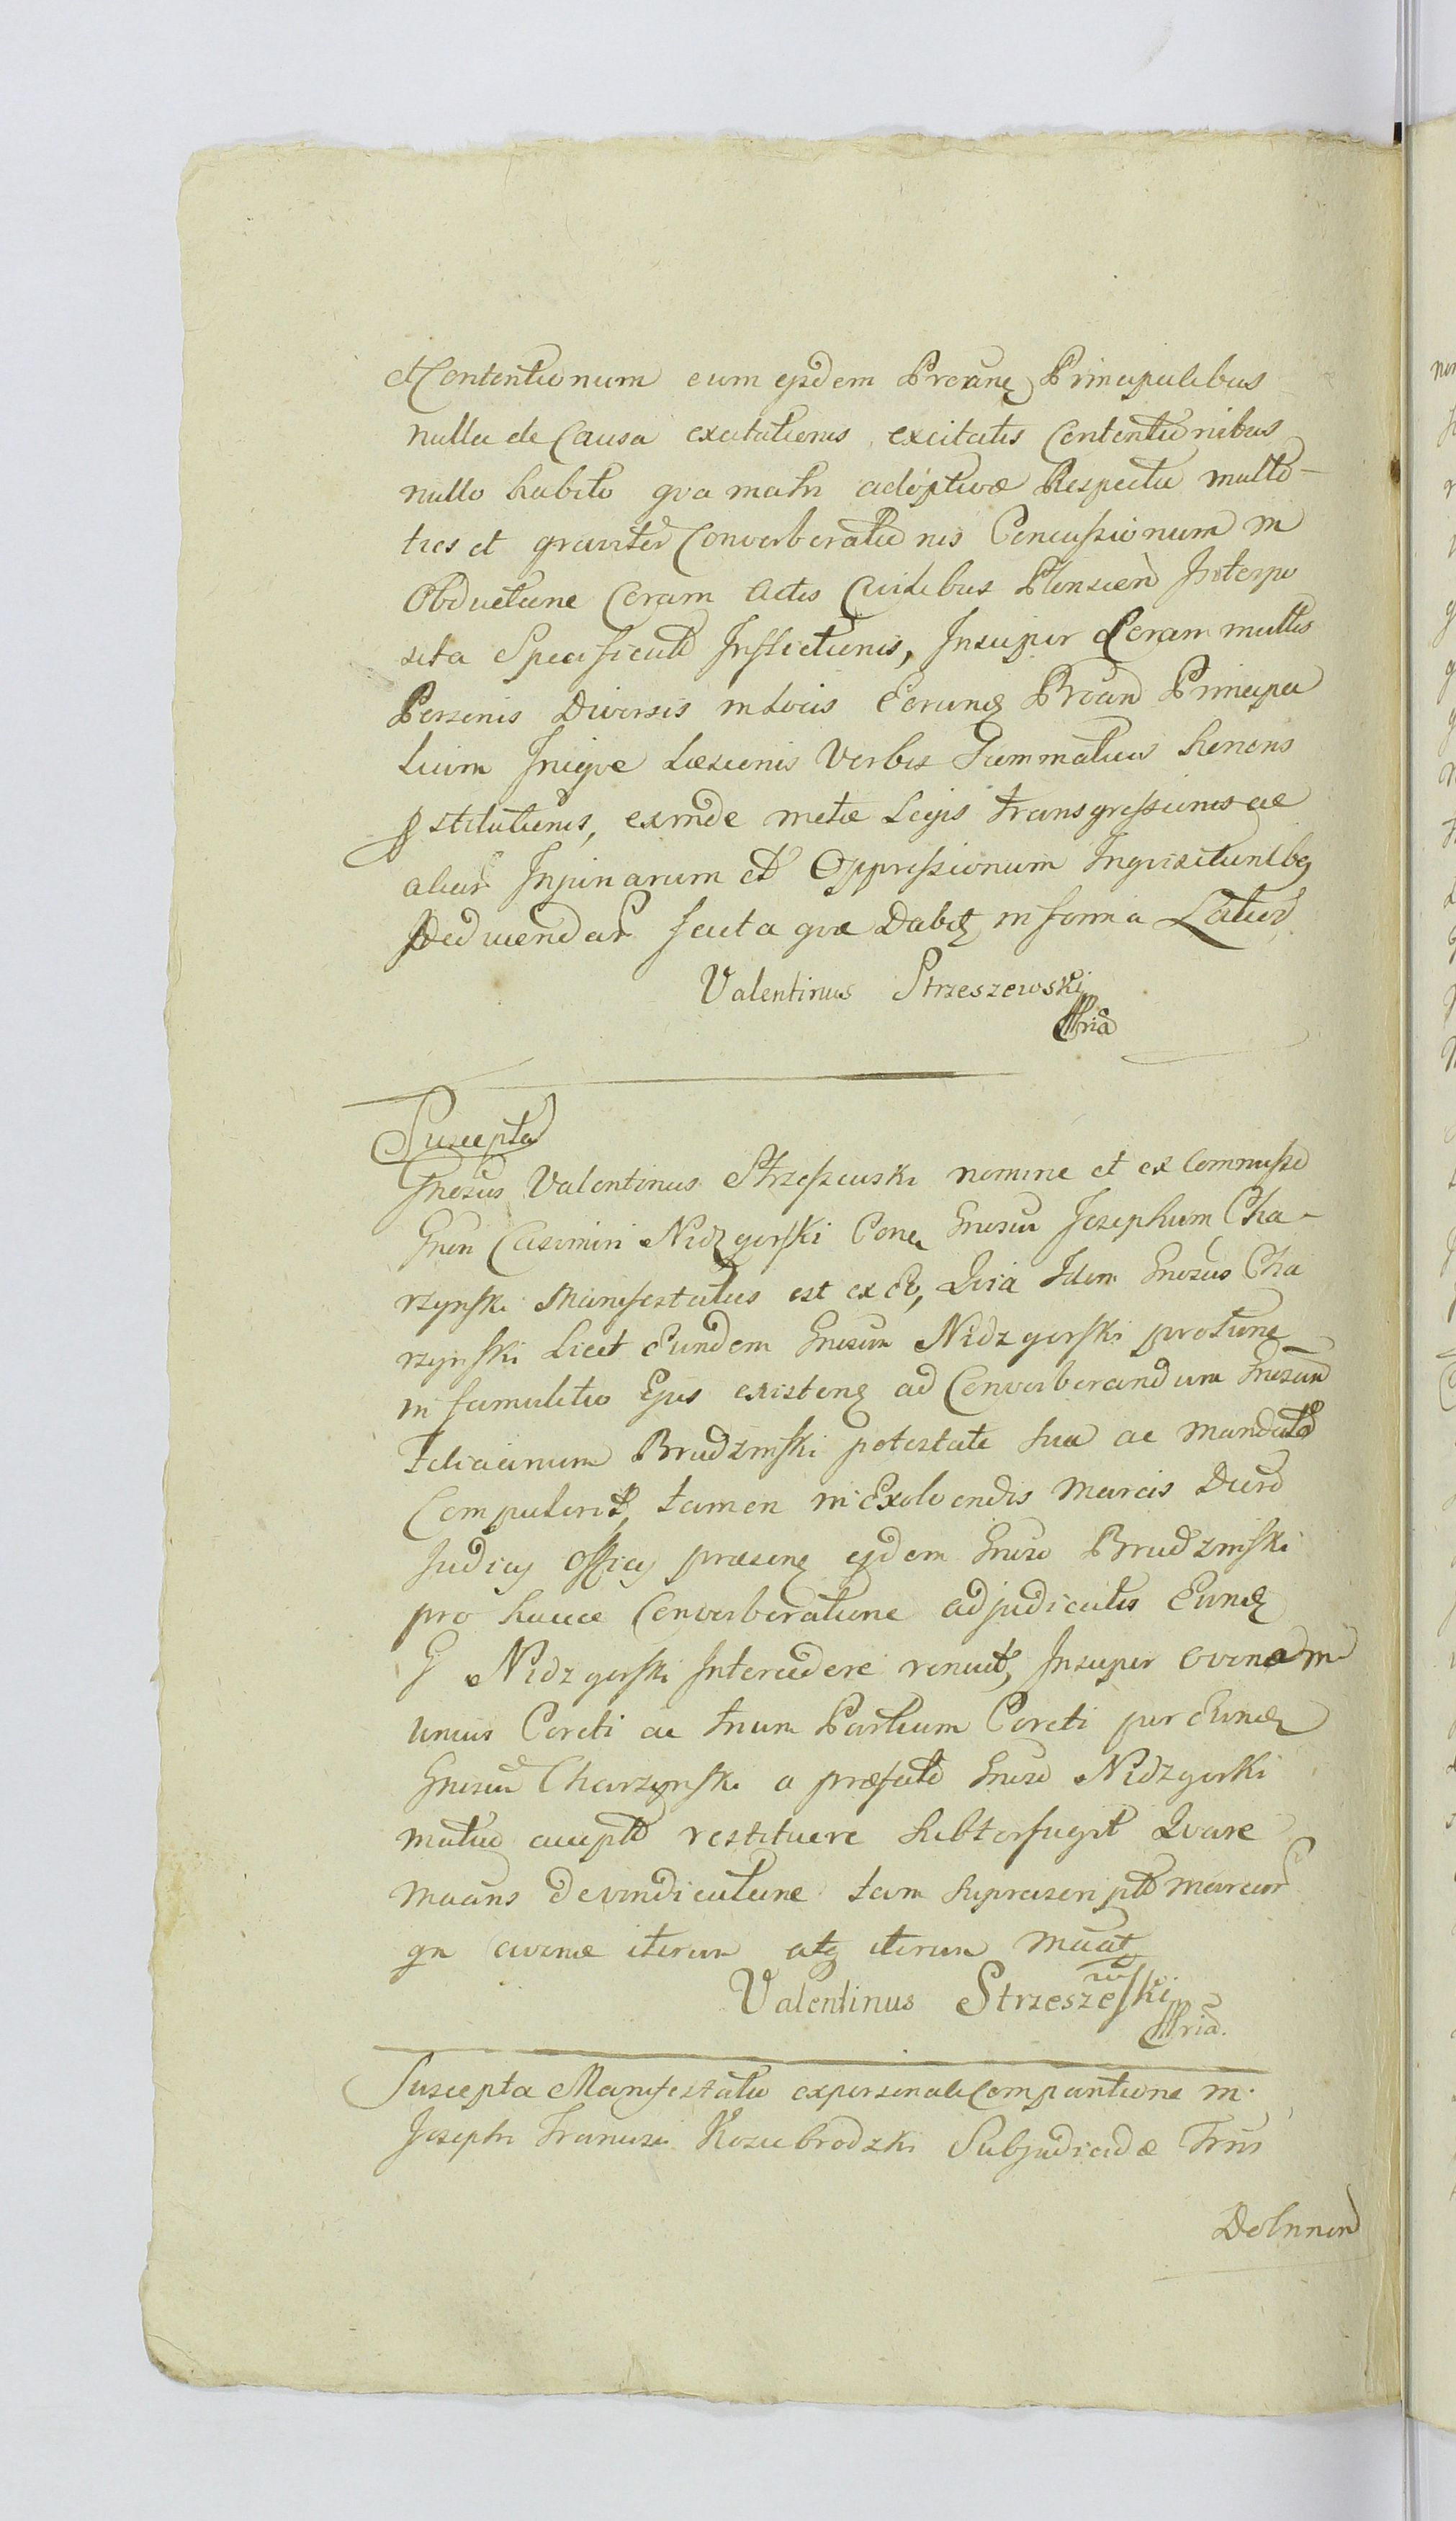 et Contentionum cum ejsdem Prcñnę Principalibus
nulla de Causa excitationis, excitatis Contentionibus
nullo habito qva matri adoptivæ Respectu multo-
ties et graviter Converberationis Concussionum in
Obductione Coram Actis Civilibus Plonscien Interpo
sita Specificato Inflictionis, Insuper Coram multis
Personis Diversis in Locis Eorundę Prcand Principa
lium Iniqve Læsionis Verbis Diffamatriis honoris
pstitutionis, exinde metæ Legis transgressionis ac
aliar Injuriarum et Oppressionum Inqvisitionibę
Deducendar facta qvæ Dabitę in forma Latiori
Valentinus Strzeszewski
mpria
Suscepta
Gnosus Valentinus Strzeszewski nomine et ex Commisso
Gnosi Casimiri Nidzgorski Conę Gnosum Josephum Cha-
rzynski Manifestatus est ex Eo, Qvia Idem Gnosus Cha
rzynski Licet Eundem Gnosum Nidzgorski protunc
in famulitio Ejus existenę ad Converberandum Gnosum
Felicianum Brudzinski potestate sua ac mandato
Compulerit, tamen in Exolvendis marcis Duro
Judicij Officij præsenę ejdem Gnoso Brudzinski
pro hacce Converberatione adjudicatis Eundę
G Nidzgorski Intercedere renuit, Insuper avenam
unius Coreti ac trium Partium Coreti per Eundę
Gnosum Charzynski a præfato Gnoso Nidzgorski
mutuo accepto restituere subterfugit Qvare
maans de vindicatione tam suprascripto marcar
qm avenæ iterum atę iterum maat
Valentinus Strzeszewski
mpria.
Suscepta Manifestatio ex personali Comparitione m.
Josephi Francisci Kozubrodzki Subjudicidæ Trris
Dobrinen